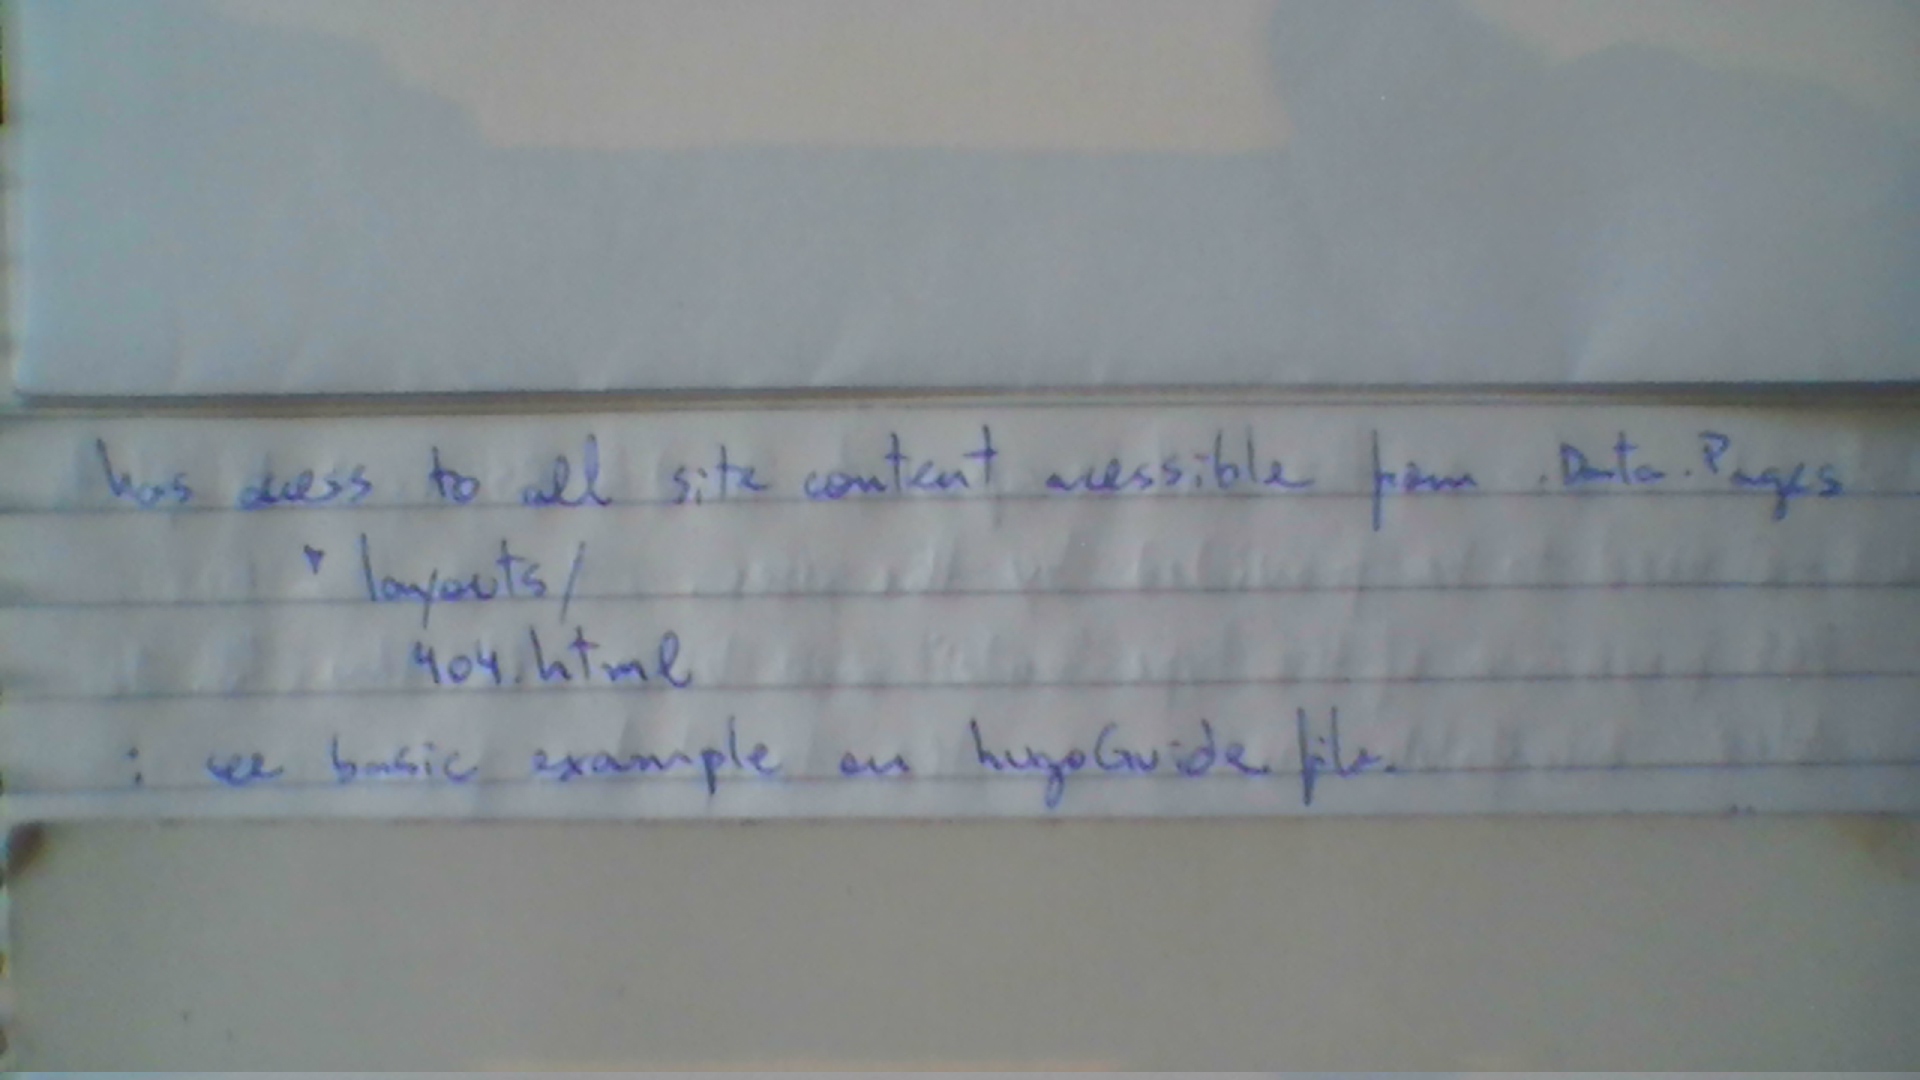 has acess to all site content acessible from .Data.Pages
▾ layouts/
404.html
: see basic example on hugoGuide file.